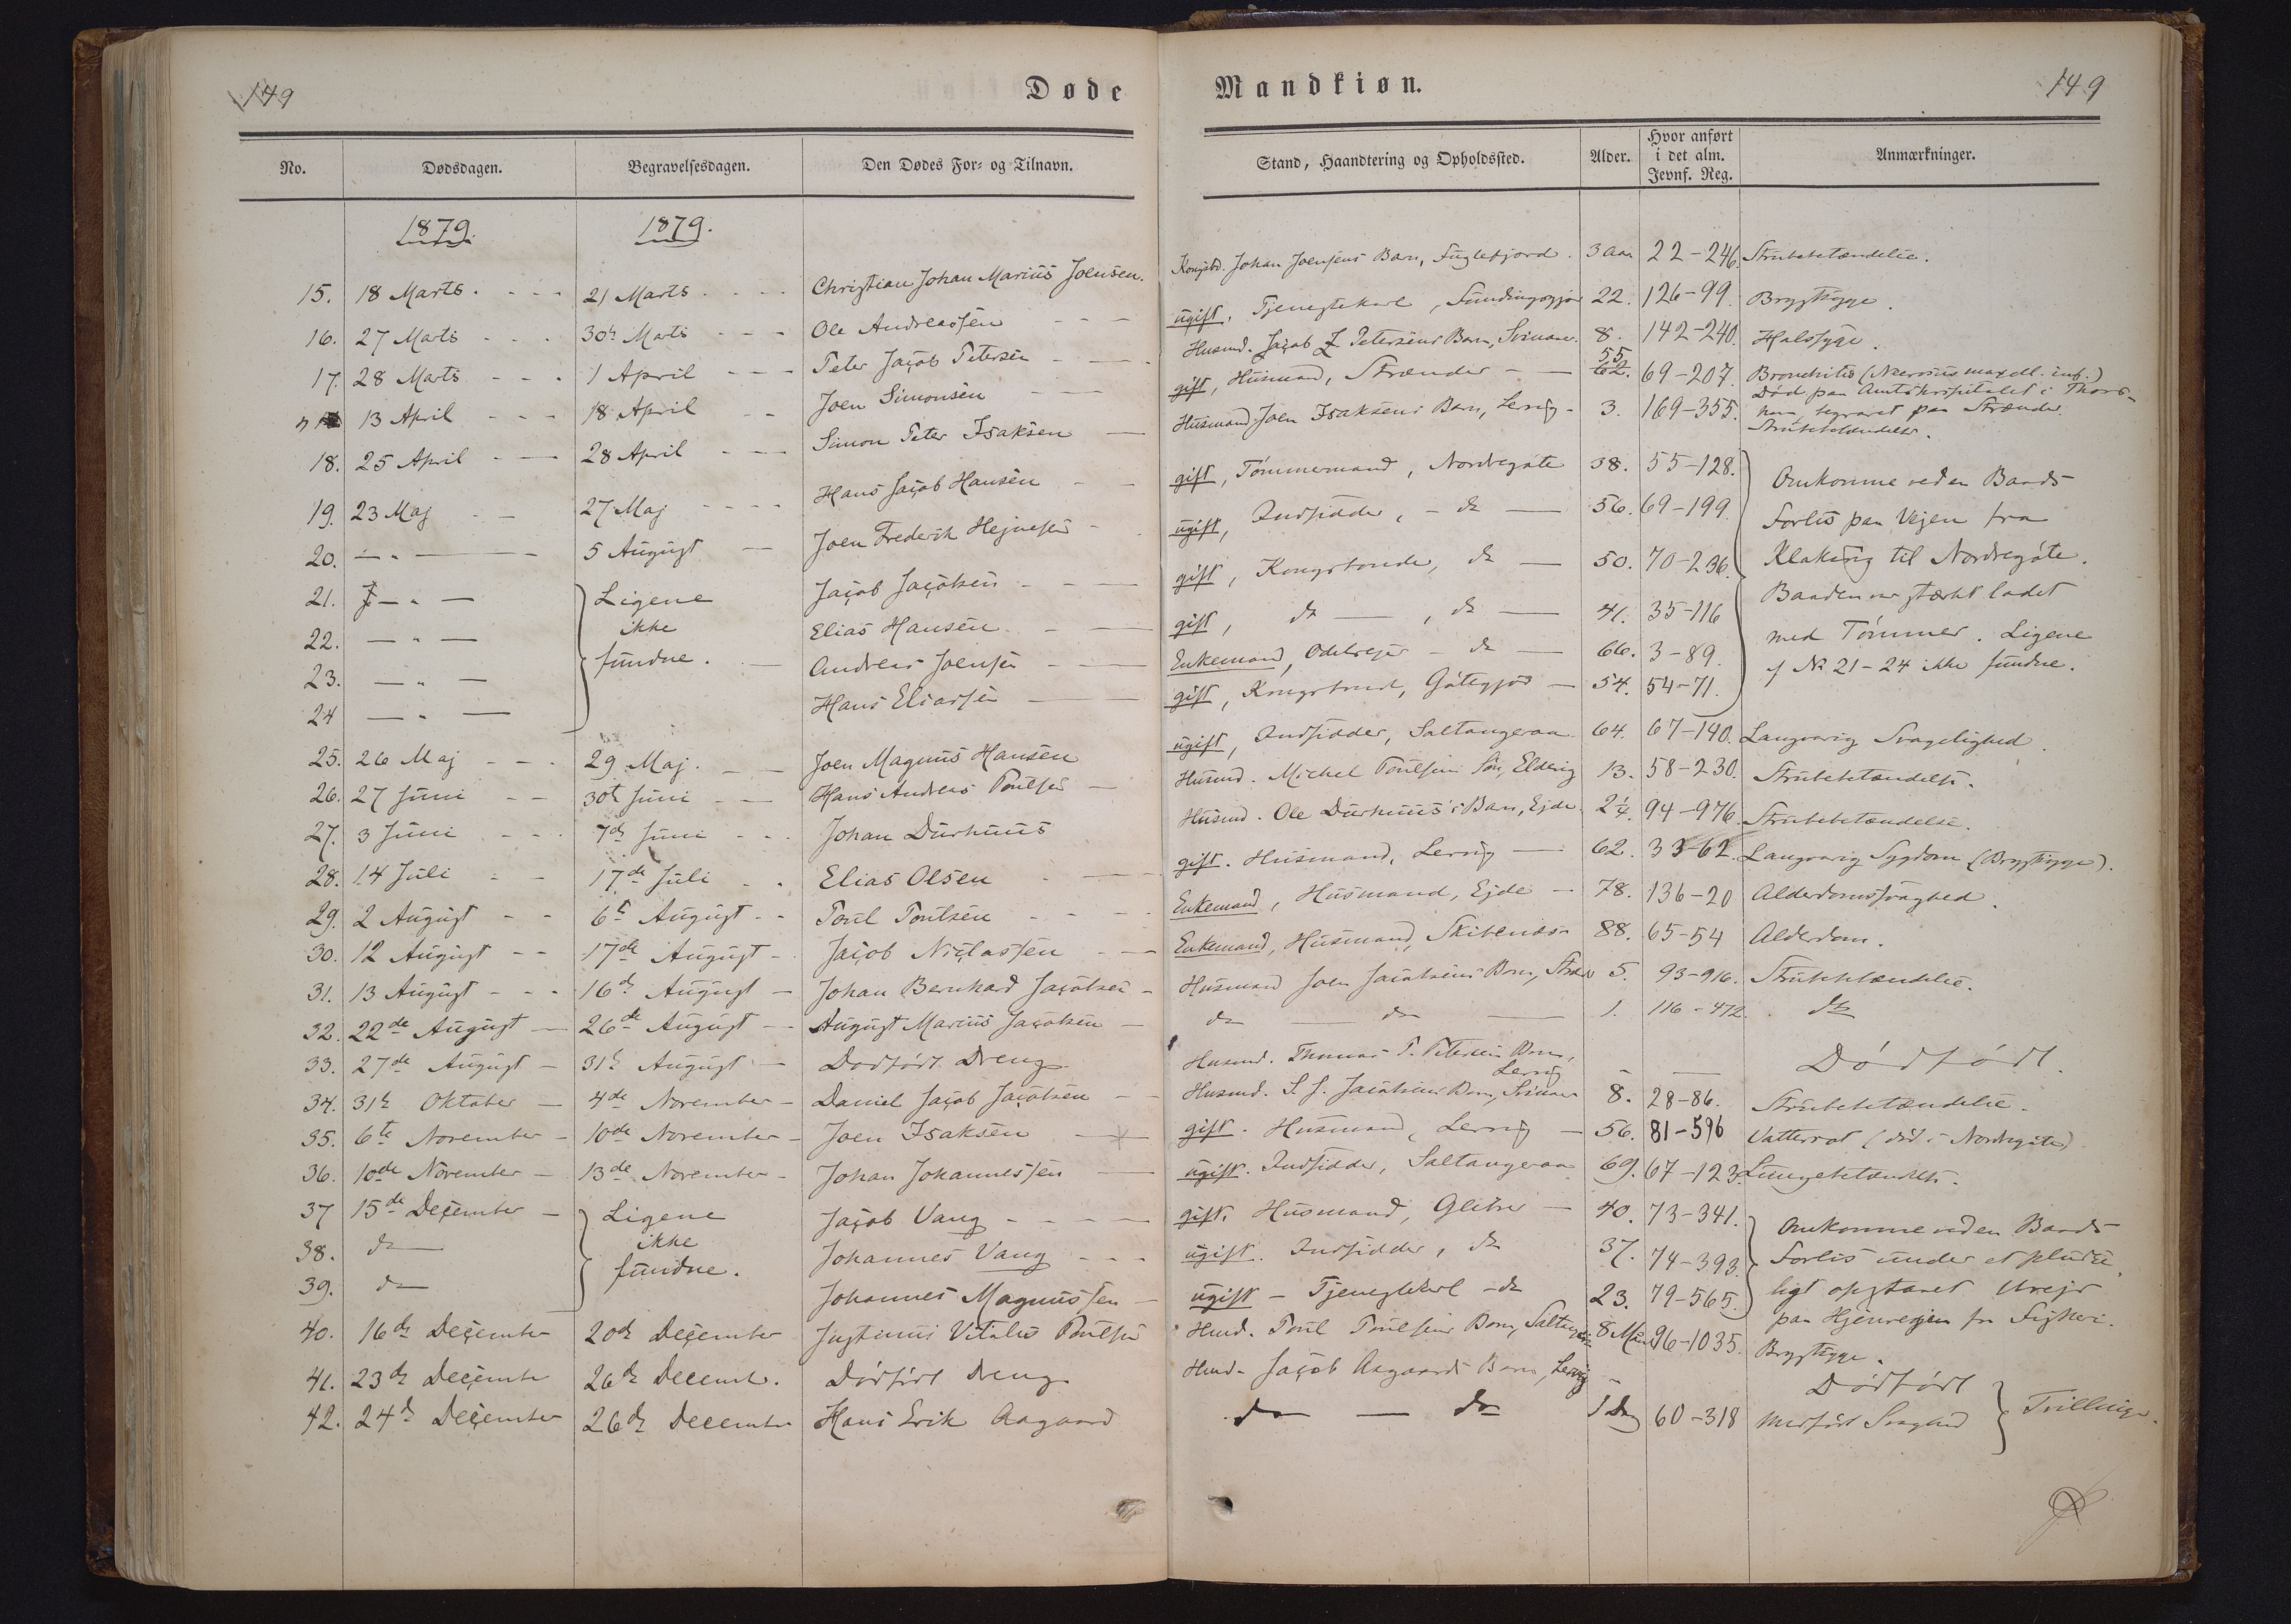 149
Døde
Mandkiøn.
149
No. Dødsdagen. Begravelsesdagen. Den Dødes For- og Tilnavn. Stand, Haandtering og Opholdssted. Alder. Hvor anført i det alm. Jevnf. Reg. Anmærkninger.
1879. 1879.
15. 18 Marts. 21 Marts Christian Johan Marius Joensen. Kongsbd. Johan Joensens Barn, Fuglefjord. 3 Aar 22-246. Strubebetændelse.
16. 27 Marts 30te Marts Ole Andreassen ugift, Tjenestekarl, 22. 126-99. Brystsyge.
17. 28 Marts 1 April Peter Jacob Petersen Husmd. Jacob Petersens Barn, Svinaar. 8. 142-240. Halssyge.
13 April 18 April Joen Simonsen gift, Husmand, Strænder 55 62. 69-207. Bronchitis
Død paa Amtshospitalet i Thorshavn, begravet paa Strænder
18. 25 April 28 April Simon Peter Isaksen Husmand Joen Isaksens Barn, Lervig 3. 169-355. Strubebetændelse.
19. 23 Maj 27 Maj Hans Jacob Hansen gift, Tømmermand, Nordregøte 38. 55-128.
20. — " — 5 August Joen Frederik Hejnesen ugift, Indsidder, - do — 56. 69-199.
21. — " — Jacob Jacobsen gift, Kongsbonde, do — 50. 70-236.
22. — " — Elias Hansen gift, do —, do — 41. 35-116
23. — " — Andreas Joensen Enkemand, Odelsejer - do — 66. 3-89.
24 — " — Hans Eliassen gift, Kongsbond, Gøtegjov 54. 54-71.
Ligene
ikke
fundne.
Omkomne ved en Baads
Forlis paa Vejen fra
Klaksvig til Nordregøte.
Baaden var stærkt ladet
med Tømmer. Ligene
af No 21-24 ikke fundne.
25. 26 Maj 29 Maj. Joen Magnus Hansen ugift, Indsidder, Saltangeraa 64. 67-140. Langvarig Svagelighed.
26. 27 Juni 30te Juni Hans Andreas Poulsen Husmd. Michel Poulsens Søn, Eldevig 13. 58-230. Strubebetændelse.
27. 3 Juni 7de Juni Johan Durhuus Husmd. Ole Durhuus's Barn, Ejde. 2¼. 94-976. Strubebetændelse.
28. 14 Juli 17de Juli Elias Olsen gift. Husmand, Lervig 62. 33-62. Langvarig Sygdom (Brystsyge).
29. 2 August 6te August Poul Poulsen Enkemand, Husmand, Ejde 78. 136-20 Alderdomssvaghed.
30. 12 August 17de August Jacob Niclassen Enkemand, Husmand, Skibenæs 88. 65-54 Alderdom.
31. 13 August 16de August Johan Bernhard Jacobsen Husmand Joen Jacobsens Barn, Stræn 5. 93-916. Strubebetændelse.
32. 22de August 26de August August Marius Jacobsen do — do — 1. 116-472. do
33. 27de August 31te August Dødfødt Dreng Husmd. Thomas P. Petersens Barn, Lervig — — Dødfødt.
34. 31te Oktober 4de November Daniel Jacob Jacobsen Husmd. S. J. Jacobsens Barn, Svinaar 8. 28-86. Strubebetændelse.
35. 6te November 10de November Joen Isaksen gift. Husmand, Lervig 56. 81-596 Vattersot (død i Nordregøte)
36. 10de November 13de November Johan Johannessen ugift. Indsidder, Saltangeraa 69. 67-123. Lungebetændelse.
37 15de December Jacob Vang gift. Husmand, Glibre 40. 73-341.
38. do — Johannes Vang ugift. Indsidder, do 37. 74-393.
39. do — Johannes Magnussen ugift - Tjenestekarl - do 23. 79-565.
Ligene
ikke
fundne.
Omkomne ved en Baads
Forlis under et pludse-
ligt opstaaet Uvejr
paa Hjemvejen fra Fiskeri.
40. 16de December 20de December Justinus Vitalis Poulsen Husmd. Poul Poulsens Barn, 8 Maan. 96-1035. Brystsyge.
41. 23de December 26de Decemb. Dødfødt Dreng Husmd. Jacob Aagaards Barn, Lervig — Dødfødt
42. 24de December 26de December Hans Erik Aagaard do — do 1 Dag 60-318 Medfødt Svaghed
Tvillinger.